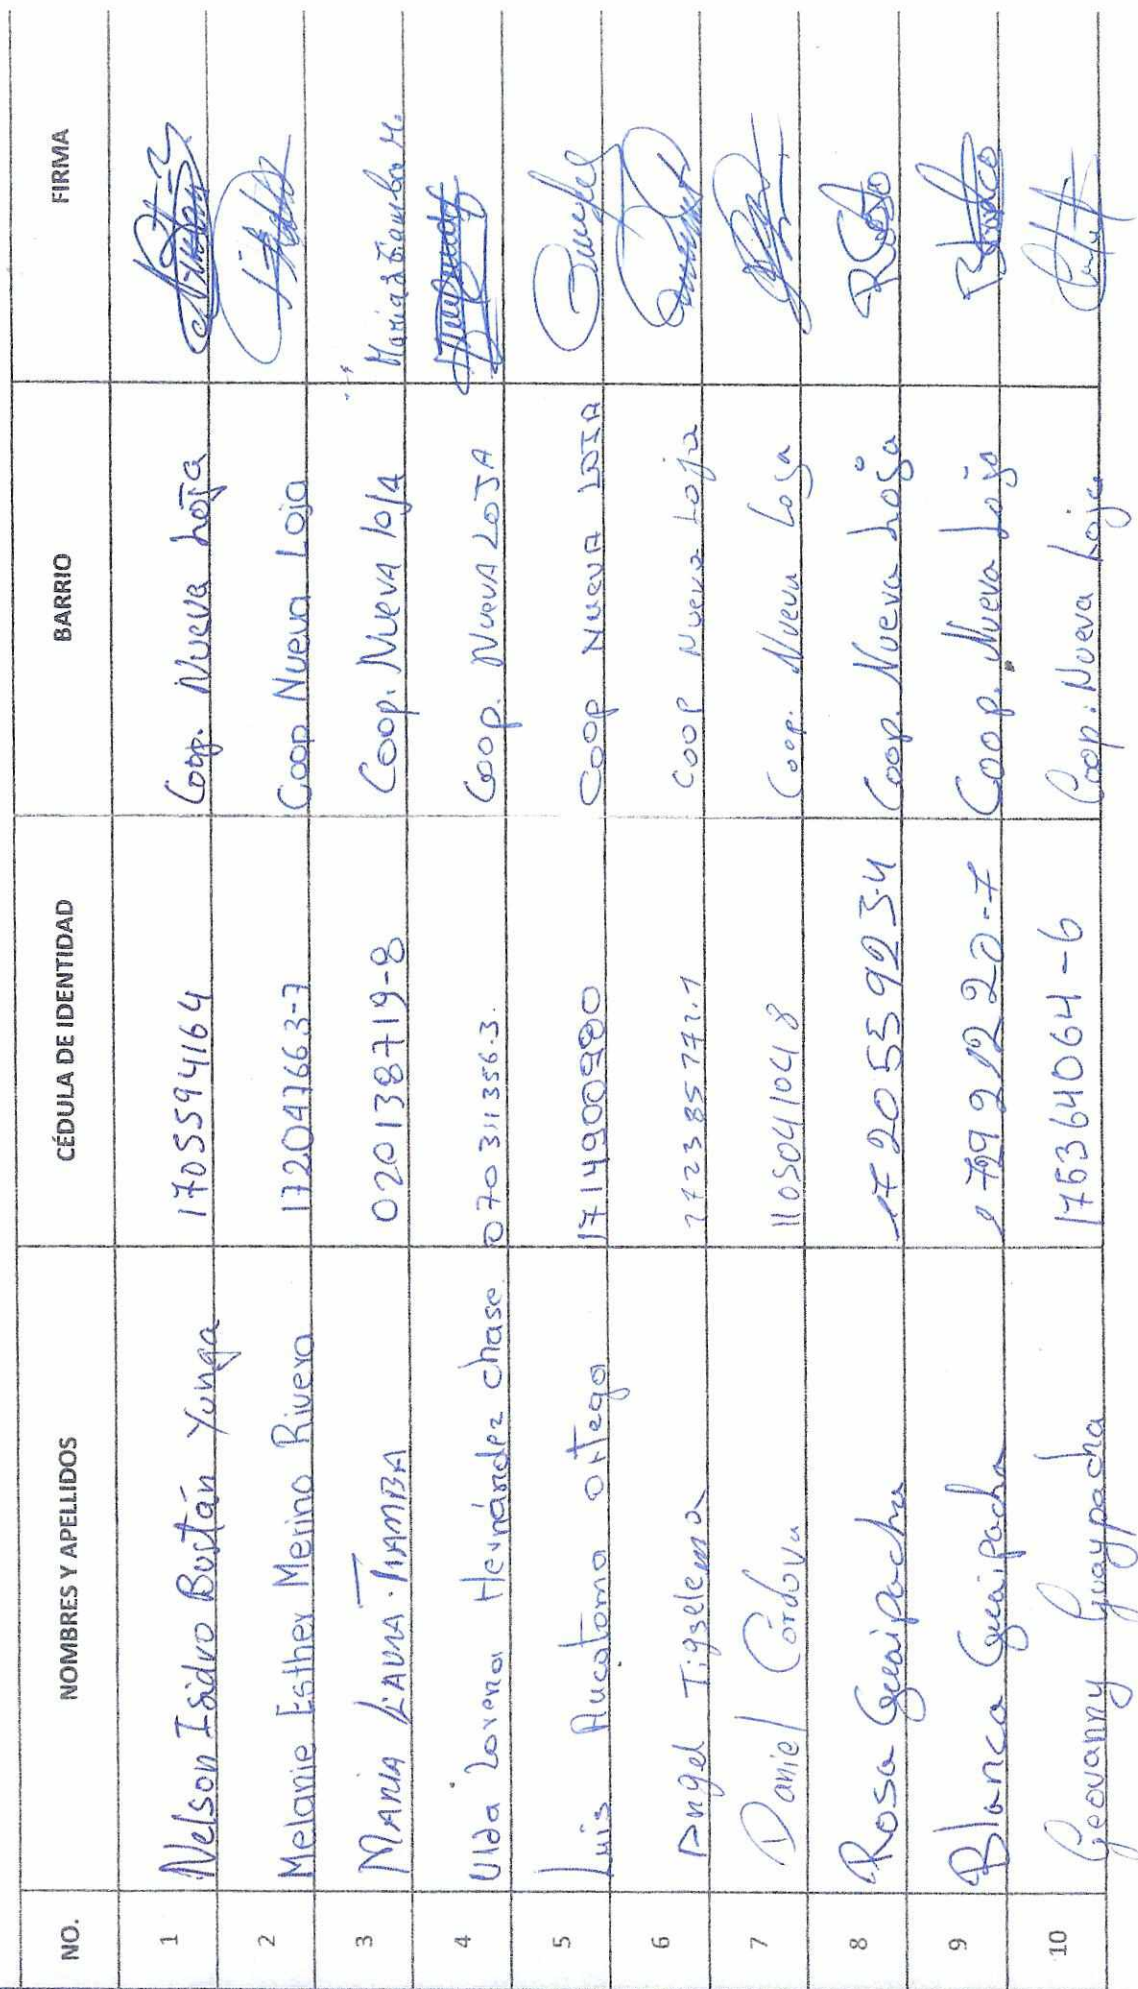 NO. NOMBRES Y APELLIDOS CÉDULA DE IDENTIDAD BARRIO FIRMA
1 Nelson Isidro Bustán Yunga 1705594164 Coop. Nueva Loja
2 Melanie Esther Merino Rivera 172047663-7 Coop Nueva Loja
3 MARIA LAURA TIAMBA 020138719-8 Coop. Nueva loja
4 Ulda Lorena Hernández chase 070311356-3. Coop. NuevA LOJA
5 Luis Aucatoma ortega 1714900980 Coop NuevA LOJA
6 Angel Tigselema Coop Nueva Loja
7 Daniel Cordova 1105041048 Coop. Nueva Loja
8 Rosa Guaipacha 172055923-4 Coop. Nueva Loja Rosa
9 Blanca Guaipacha Coop. Nueva Loja Blanca
10 Geovanny Guaypacha 175364064-6 Coop. Nueva Loja